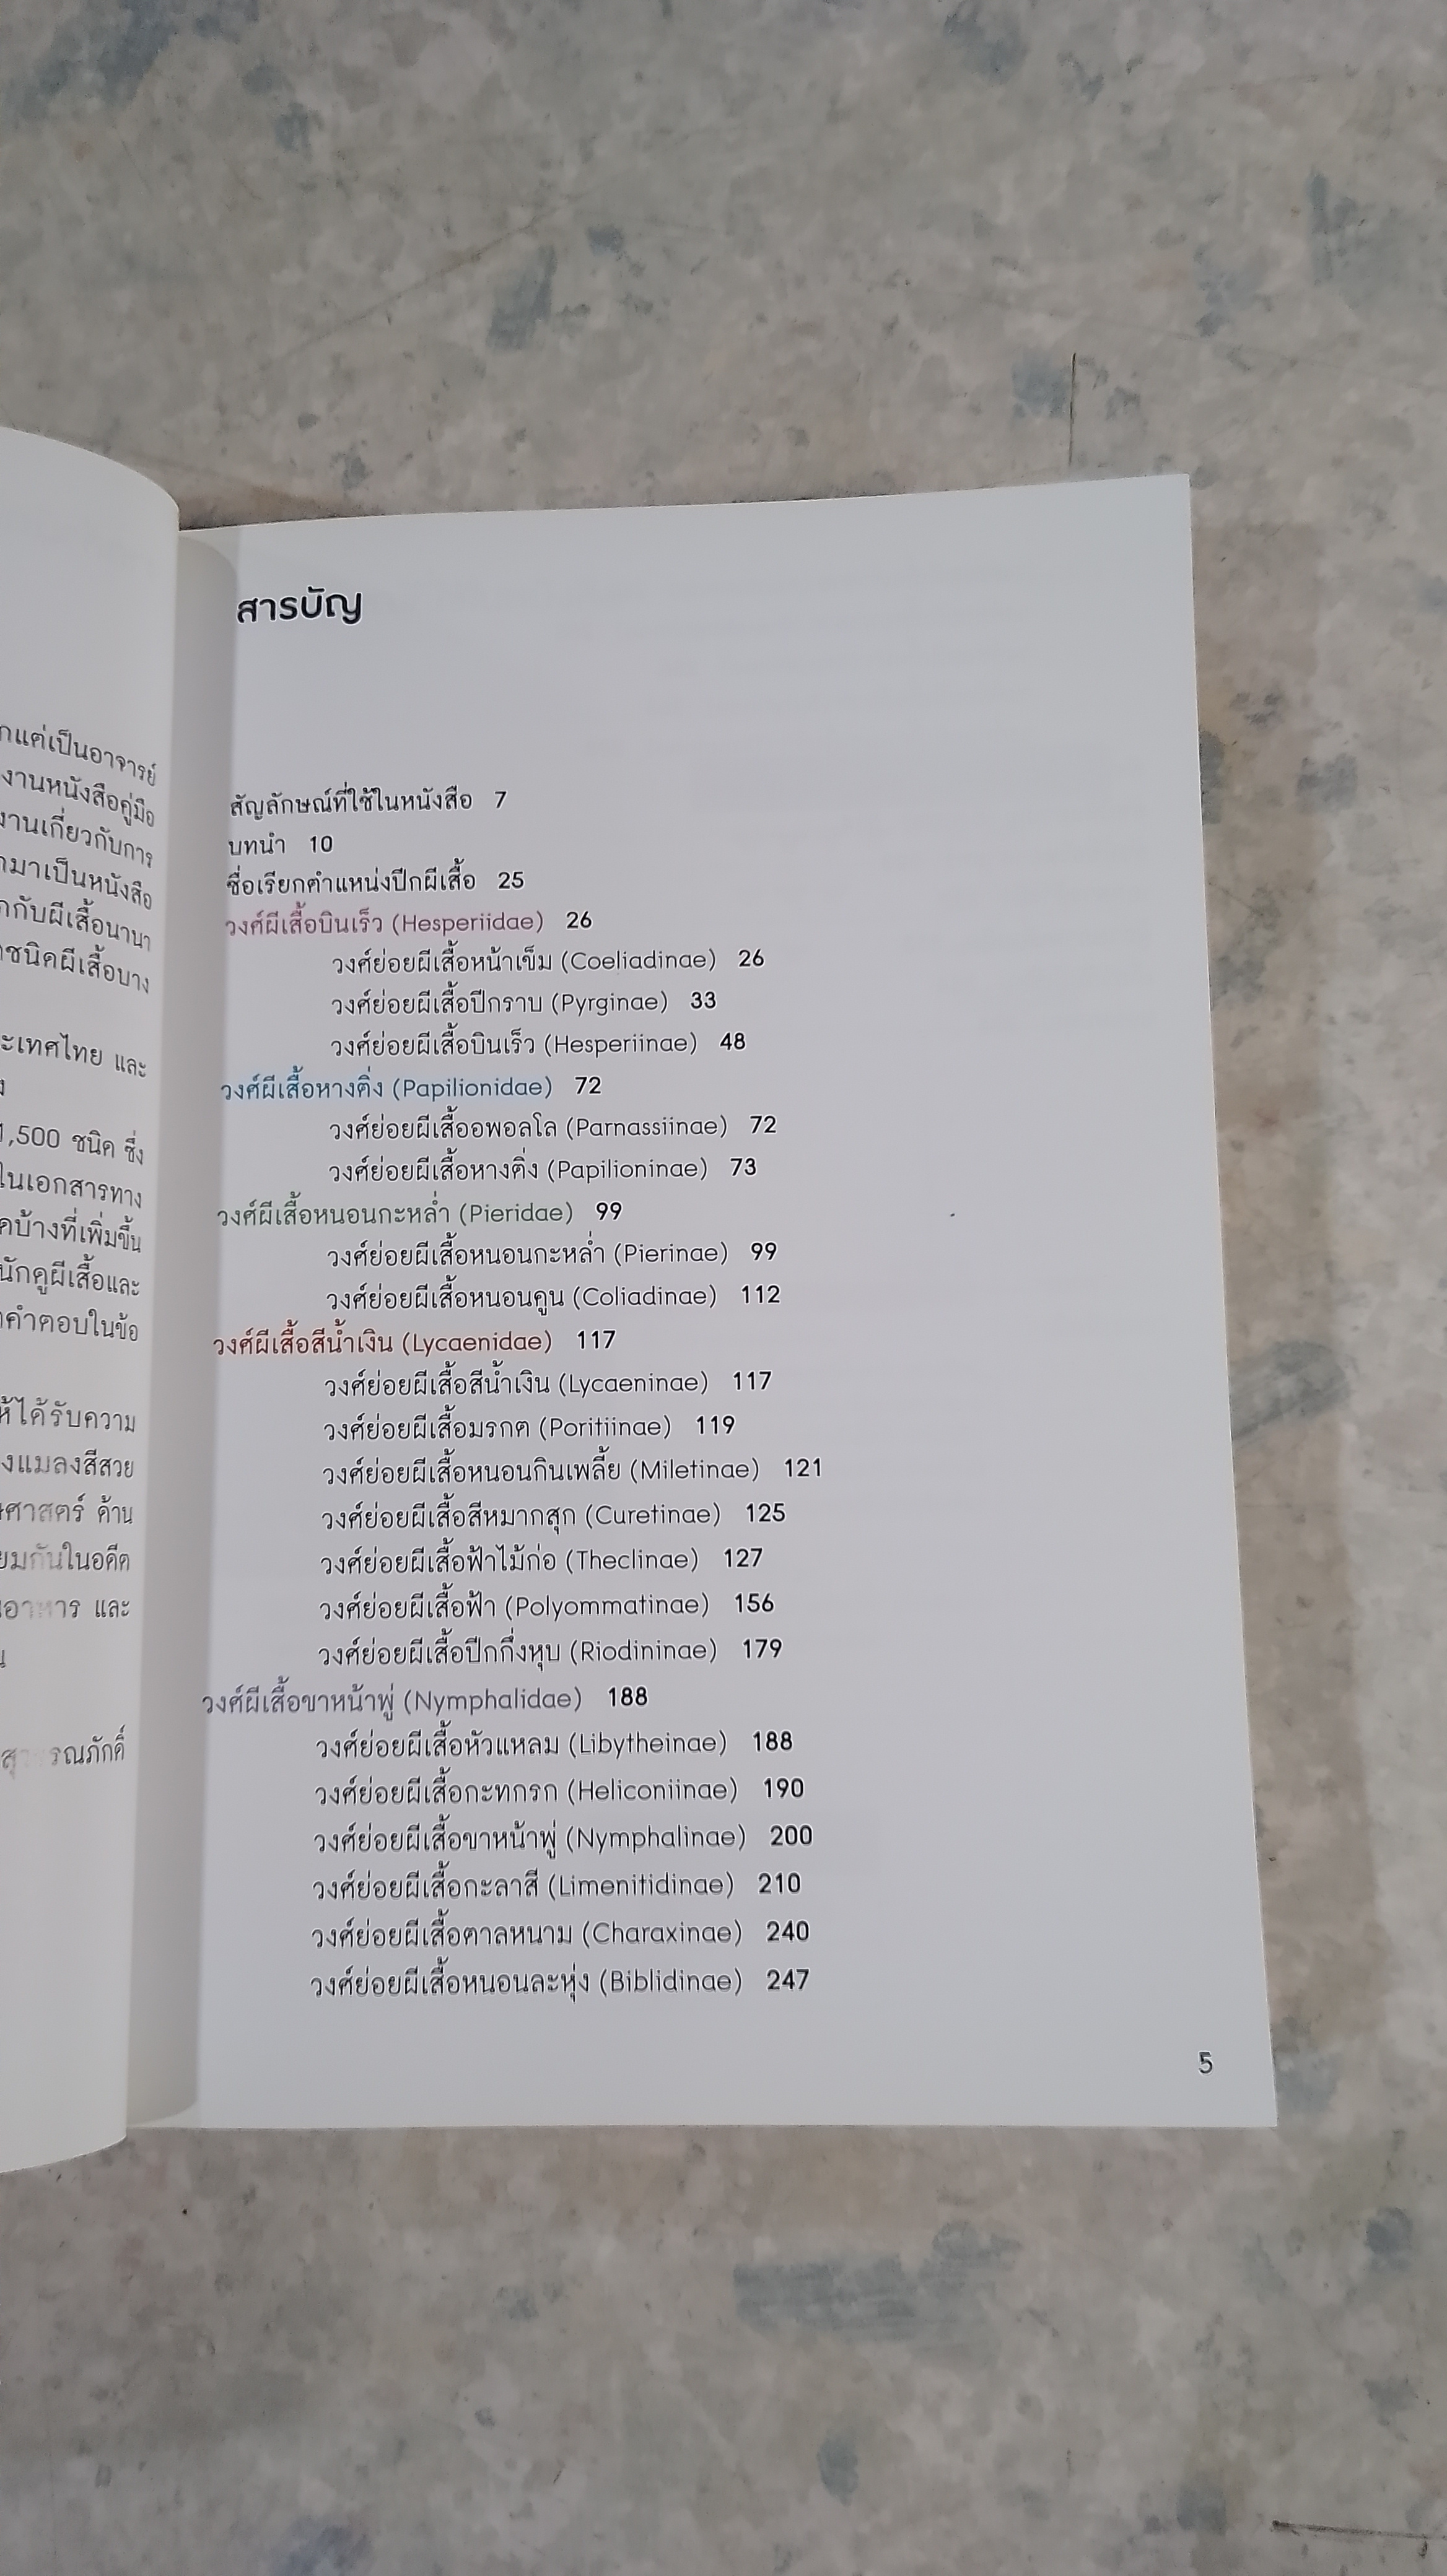 กแต่เป็นอาจารย์
งานหนังสือคู่มือ
งานเกี่ยวกับการ
มาเป็นหนังสือ
กับผีเสื้อนานา
ชนิดผีเสื้อบาง
ะเทศไทย และ
1,500 ชนิด ซึ่ง
ในเอกสารทาง
คบ้างที่เพิ่มขึ้น
นักดูผีเสื้อและ
คำตอบในข้อ
ห้ได้รับความ
งแมลงสีสวย
ศาสตร์ ด้าน
ยมกันในอดีต
อาหาร และ
สุวรรณภักดิ์
สารบัญ
สัญลักษณ์ที่ใช้ในหนังสือ 7
บทนำ 10
ชื่อเรียกตำแหน่งปีกผีเสื้อ 25
วงศ์ผีเสื้อบินเร็ว (Hesperiidae) 26
วงศ์ย่อยผีเสื้อหน้าเข็ม (Coeliadinae) 26
วงศ์ย่อยผีเสื้อปีกราบ (Pyrginae) 33
วงศ์ย่อยผีเสื้อบินเร็ว (Hesperiinae) 48
วงศ์ผีเสื้อหางติ่ง (Papilionidae) 72
วงศ์ย่อยผีเสื้ออพอลโล (Parnassiinae) 72
วงศ์ย่อยผีเสื้อหางติ่ง (Papilioninae) 73
วงศ์ผีเสื้อหนอนกะหล่ำ (Pieridae) 99
วงศ์ย่อยผีเสื้อหนอนกะหล่ำ (Pierinae) 99
วงศ์ย่อยผีเสื้อหนอนคูน (Coliadinae) 112
วงศ์ผีเสื้อสีน้ำเงิน (Lycaenidae) 117
วงศ์ย่อยผีเสื้อสีน้ำเงิน (Lycaeninae) 117
วงศ์ย่อยผีเสื้อมรกต (Poritiinae) 119
วงศ์ย่อยผีเสื้อหนอนกินเพลี้ย (Miletinae) 121
วงศ์ย่อยผีเสื้อสีหมากสุก (Curetinae) 125
วงศ์ย่อยผีเสื้อฟ้าไม้ก่อ (Theclinae) 127
วงศ์ย่อยผีเสื้อฟ้า (Polyommatinae) 156
วงศ์ย่อยผีเสื้อปีกกึ่งหุบ (Riodininae) 179
วงศ์ผีเสื้อขาหน้าพู่ (Nymphalidae) 188
วงศ์ย่อยผีเสื้อหัวแหลม (Libytheinae) 188
วงศ์ย่อยผีเสื้อกะทกรก (Heliconiinae) 190
วงศ์ย่อยผีเสื้อขาหน้าพู่ (Nymphalinae) 200
วงศ์ย่อยผีเสื้อกะลาสี (Limenitidinae) 210
วงศ์ย่อยผีเสื้อตาลหนาม (Charaxinae) 240
วงศ์ย่อยผีเสื้อหนอนละหุ่ง (Biblidinae) 247
5